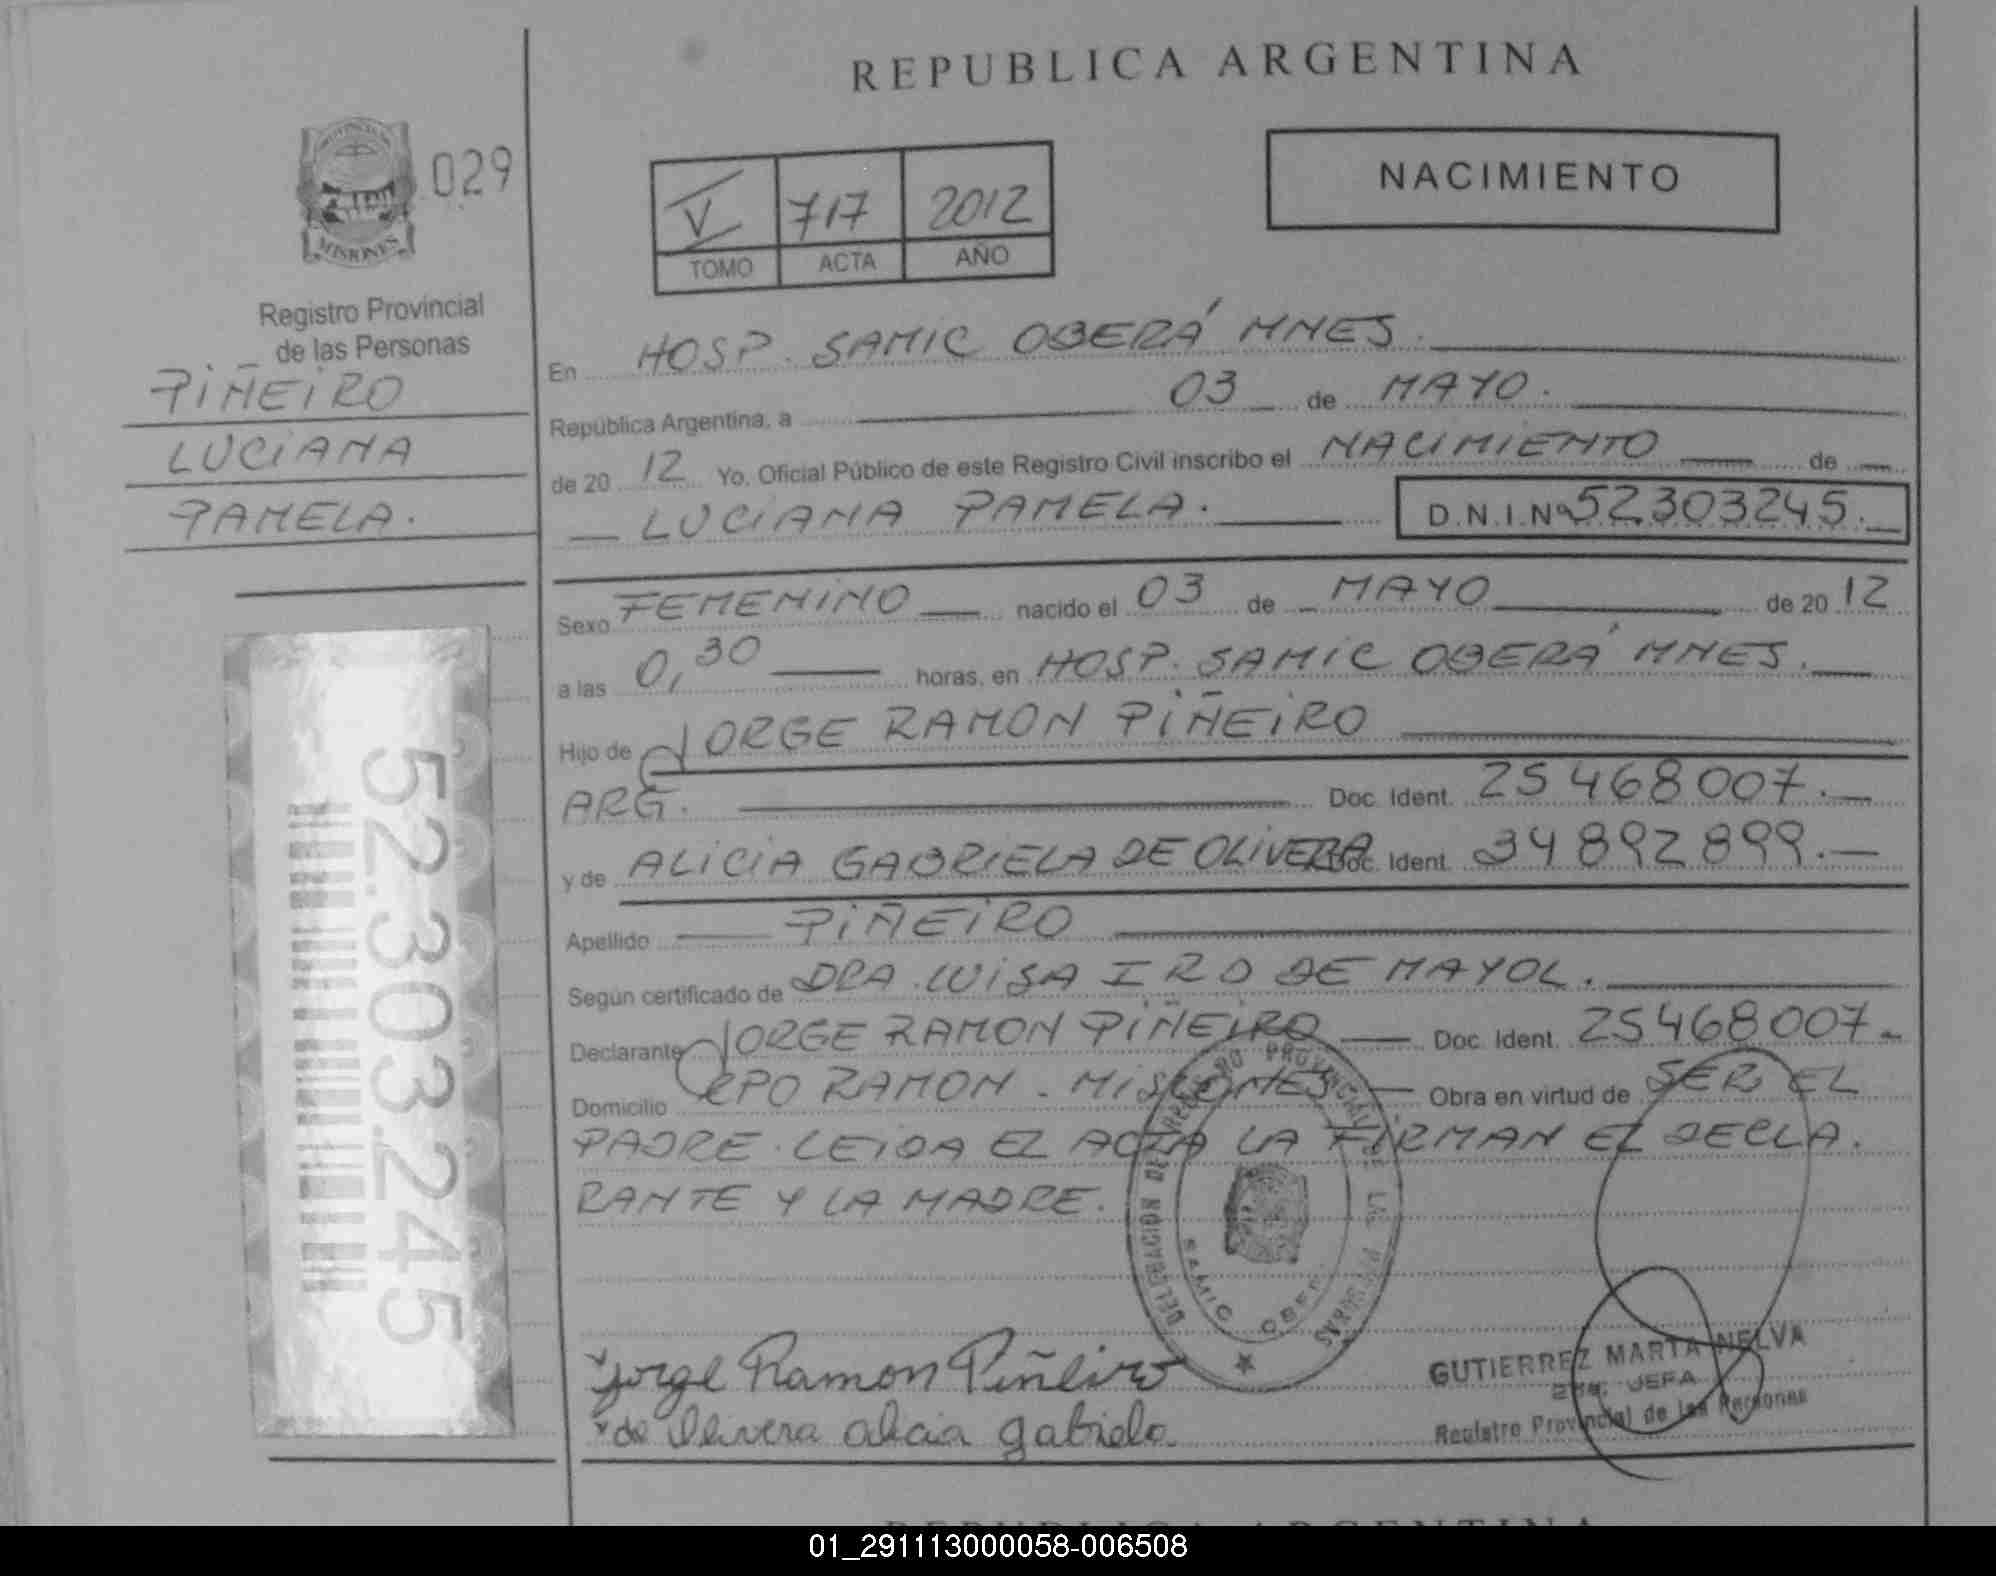 REPUBLICA ARGENTINA
PROVINCIA DE
MISIONES
029
V 717 2012
TOMO ACTA AÑO
NACIMIENTO
Registro Provincial
de las Personas
PIÑEIRO
LUCIANA
PAMELA.
En HOSP. SAMIC OBERÁ MNES.
República Argentina, a 03 de MAYO.
de 20 12 Yo, Oficial Público de este Registro Civil inscribo el NACIMIENTO de
LUCIANA PAMELA. D.N.I.Nº 52303245.
Sexo FEMENINO nacido el 03 de MAYO de 20 12
a las 0,30 horas, en HOSP. SAMIC OBERÁ MNES.
Hijo de JORGE RAMON PIÑEIRO
ARG. Doc. Ident. 25468007.
y de ALICIA GABRIELA DE OLIVERA Doc. Ident. 34892899.
Apellido PIÑEIRO
Según certificado de DRA. LUISA IRO DE MAYOL.
Declarante JORGE RAMON PIÑEIRO Doc. Ident. 25468007.
Domicilio CPO RAMON - MISIONES Obra en virtud de SER EL
PADRE. LEIDA EL ACTA LA FIRMAN EL DECLA.
RANTE Y LA MADRE.
52.303.245
DELEGACION DEL REGISTRO PROVINCIAL DE LAS PERSONAS
SAMIC
Jorge Ramon Piñeiro
de Olivera alicia gabriela
GUTIERREZ MARTA NELVA
JEFA
Registro Provincial de las Personas
REPUBLICA ARGENTINA
01_291113000058-006508